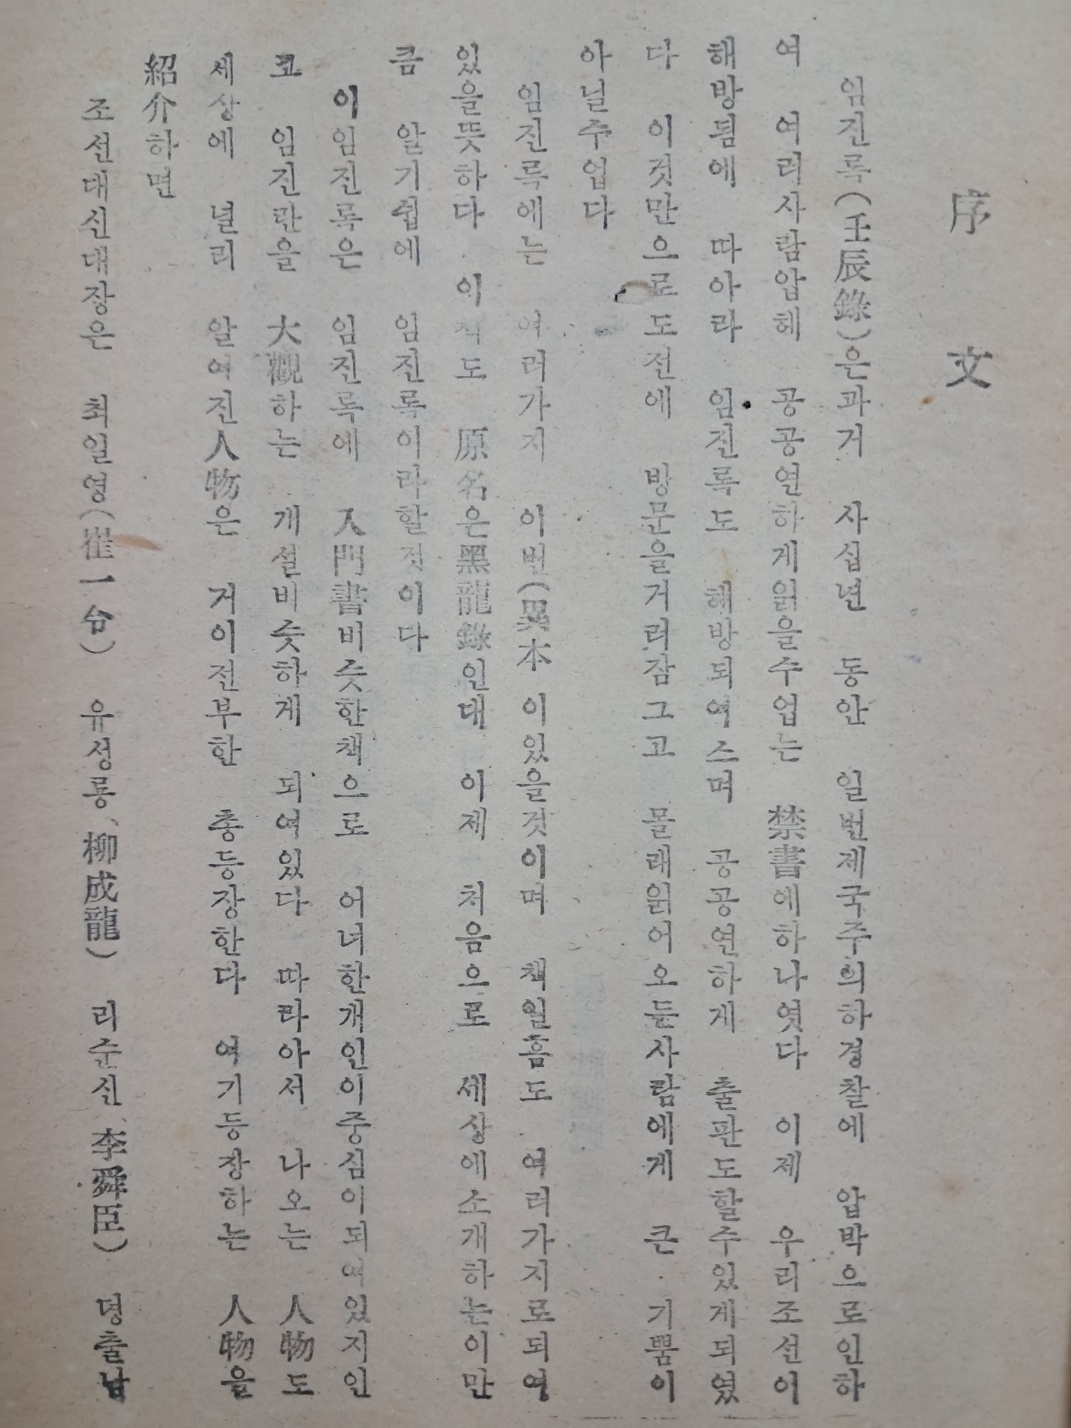 序文
임진록(壬辰錄)은과거 사십년 동안 일번제국주의하경찰에 압박으로인하
여 여러사람압헤 공공연하게읽을수업는 禁書에하나엿다 이제 우리조선이
해방됨에 따아라 임진록도 해방되여스며 공공연하게 출판도할수있게되였
다 이것만으로도전에 방문을거러잠그고 몰래읽어오든사람에게 큰 기쁨이
아닐수업다
임진록에는 여러가지 이번(異本 이있을것이며 책일홈도 여러가지로되여
있을뜻하다 이책도 原名은黑龍錄인대 이제 처음으로 세상에소개하는이만
큼 알기쉽에 임진록이라할것이다
이임진록은 임진록에 入門書비슷한책으로 어너한개인이중심이되여있지인
코 임진란을 大觀하는 개설비슷하게 되여있다 따라아서 나오는 人物도
세상에 널리 알여진人物은 거이전부한 총등장한다 여기등장하는 人物을
紹介하면
조선대신대장은 최일영(崔一台) 유성룡、柳成龍) 리순신、李舜臣) 뎡출남